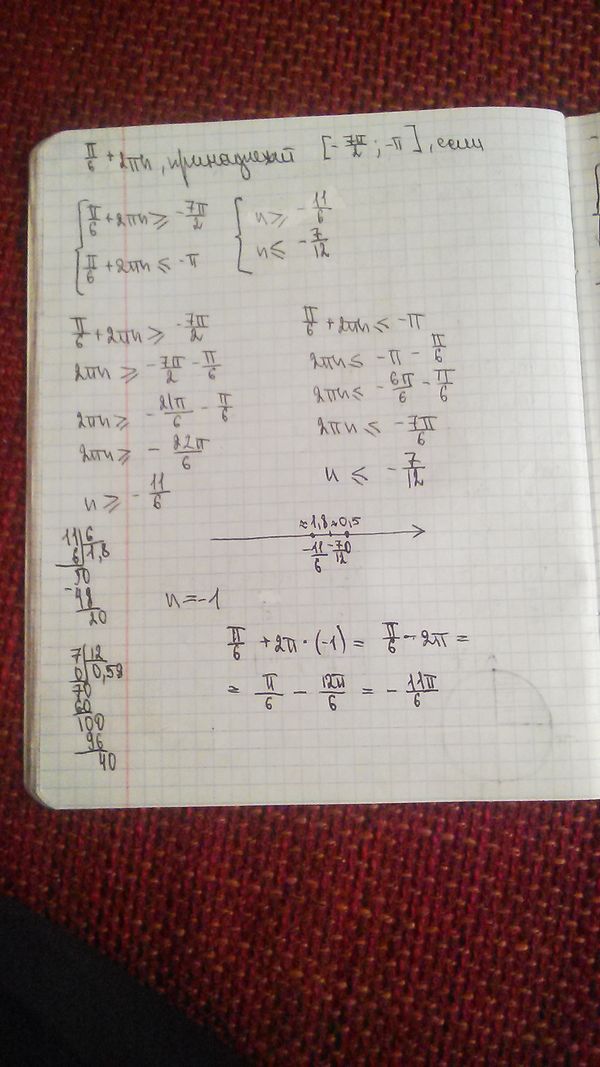 π/6 + 2πn, принадлежит [-7π/2 ; -π], если
{ π/6 + 2πn ≥ -7π/2 { n ≥ -11/6
{ π/6 + 2πn ≤ -π { n ≤ -7/12
π/6 + 2πn ≥ -7π/2
2πn ≥ -7π/2 - π/6
2πn ≥ -21π/6 - π/6
2πn ≥ -22π/6
n ≥ -11/6
π/6 + 2πn ≤ -π
2πn ≤ -π - π/6
2πn ≤ -6π/6 - π/6
2πn ≤ -7π/6
n ≤ -7/12
≈1,8 ≈0,5
-11/6 -7/12 0
11|6
6|1,8
50
-48
20
7|12
0|0,58
70
60
100
96
40
n = -1
π/6 + 2π · (-1) = π/6 - 2π =
= π/6 - 12π/6 = -11π/6